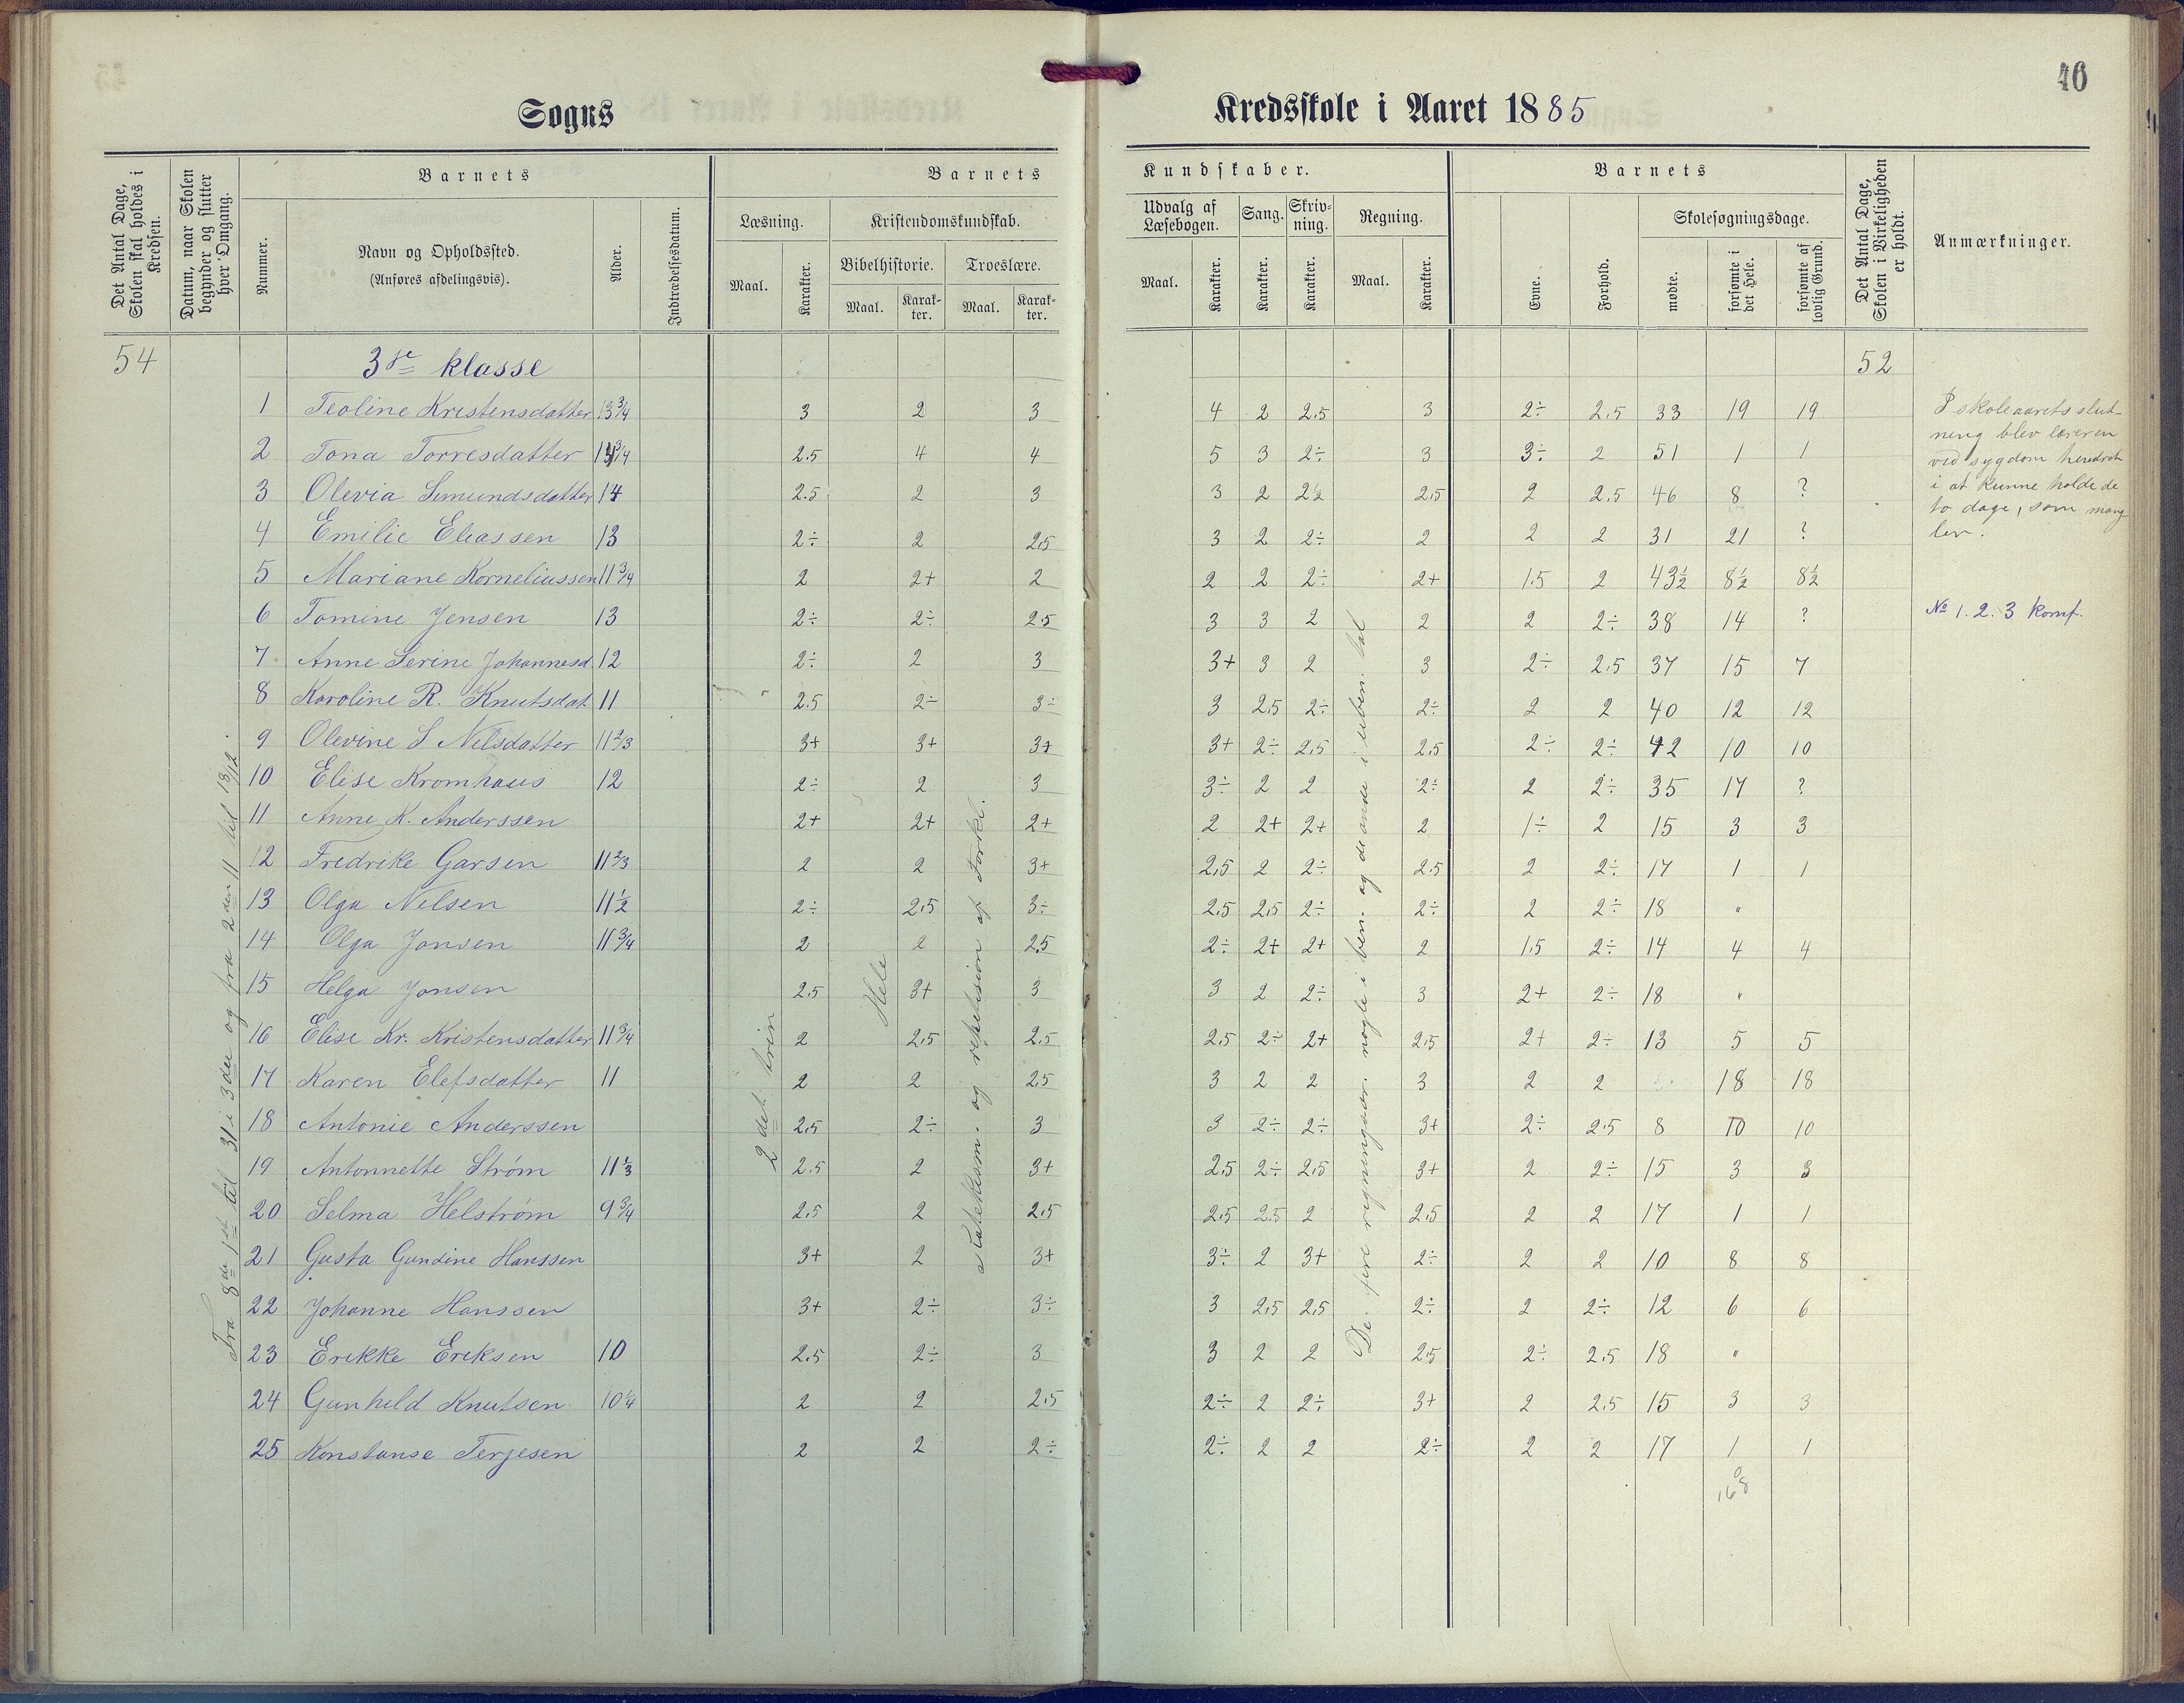 46
Sogns Kredsskole i Aaret 1885
Det Antal Dage, Skolen skal holdes i Kredsen.
Datum, naar Skolen begynder og slutter hver Omgang.
Barnets
Nummer.
Navn og Opholdssted.
(Anføres afdelingsvis).
Alder.
Indtrædelsesdatum.
Barnets Kundskaber.
Læsning. Kristendomskundskab.
Maal. Karakter.
Bibelhistorie. Troeslære.
Maal. Karakter. Maal. Karakter.
Udvalg af Læsebogen. Sang. Skrivning. Regning.
Maal. Karakter. Karakter. Karakter. Maal. Karakter.
Barnets
Evne. Forhold.
Skolesøgningsdage.
mødte. forsømte i det Hele. forsømte af lovlig Grund.
Det Antal Dage, Skolen i Virkeligheden er holdt.
Anmærkninger.
54 3die klasse 52
1 Teoline Kristensdatter 13 3/4 3 2 3 4 2 2.5 3 2÷ 2.5 33 19 19
2 Tona Torresdatter 2.5 4 4 5 3 2÷ 3 3÷ 2 51 1 1
3 Olevia Simundsdatter 14 2.5 2 3 3 2 2½ 2.5 2 2.5 46 8 ?
4 Emilie Eliassen 13 2÷ 2 2.5 3 2 2÷ 2 2 2 31 21 ?
5 Mariane Korneliussen 11 3/4 2 2+ 2 2 2 2÷ 2+ 1.5 2 43½ 8½ 8½
6 Tomine Jensen 13 2÷ 2÷ 2.5 3 3 2 2 2 2÷ 38 14 ?
7 Anne Serine Johannesd. 12 2÷ 2 3 3+ 3 2 3 2÷ 2.5 37 15 7
8 Karoline R. Knutsdat 11 2.5 2÷ 3÷ 3 2.5 2÷ 2÷ 2 2 40 12 12
9 Olevine S Nilsdatter 11 2/3 3+ 3+ 3+ 3+ 2÷ 2.5 2.5 2÷ 2÷ 42 10 10
10 Elise Kromhaus 12 2÷ 2 3 3÷ 2 2 2÷ 2 2÷ 35 17 ?
11 Anne K. Anderssen 2+ 2+ 2+ 2 2+ 2+ 2 1÷ 2 15 3 3
12 Fredrike Garsen 11 2/3 2 2 3+ 2.5 2 2÷ 2.5 2 2÷ 17 1 1
13 Olga Nilsen 11½ 2÷ 2.5 3÷ 2.5 2.5 2÷ 2÷ 2 2÷ 18 "
14 Olga Jonsen 11 3/4 2 2 2.5 2÷ 2+ 2+ 2 1.5 2÷ 14 4 4
15 Helga Jonsen 2.5 3+ 3 3 2 2÷ 3 2+ 2÷ 18 "
16 Elise Kr. Kristensdatter 11 3/4 2 2.5 2.5 2.5 2÷ 2+ 2.5 2+ 2÷ 13 5 5
17 Karen Elefsdatter 11 2 2 2.5 3 2 2 3 2 2 18 18
18 Antonie Anderssen 2.5 2÷ 3 3 2÷ 2÷ 3+ 2÷ 2.5 8 10 10
19 Antonnette Strøm 11 1/3 2.5 2 3+ 2.5 2÷ 2.5 3+ 2 2÷ 15 3 3
20 Selma Helstrøm 9 3/4 2.5 2 2.5 2.5 2.5 2 2.5 2 2 17 1 1
21 Gusta Gundine Hanssen 3+ 2 3+ 3÷ 2 3+ 2÷ 2 2 10 8 8
22 Johanne Hanssen 3+ 2÷ 3÷ 3 2.5 2.5 2÷ 2 2÷ 12 6 6
23 Erikke Eriksen 10 2.5 2÷ 3 3 2 2 2.5 2÷ 2.5 18 "
24 Gunhild Knutsen 10 1/4 2 2 2.5 2÷ 2 2÷ 3+ 2 2.5 15 3 3
25 Konstanse Terjesen 2 2 2÷ 2÷ 2 2 2÷ 2 2 17 1 1
168
Fra 8de 1st til 31 i 3die og fra 2den 11 til 18/12.
2det trin
Hele
og repetision af Forkl.
De fire regningsar. nogle i ben. og de andre i uben. tal
I skoleaarets slut-
ning blev læreren
ved sygdom hindret
i at kunne holde de
to dage, som mang-
ler.
No 1. 2. 3 konf.